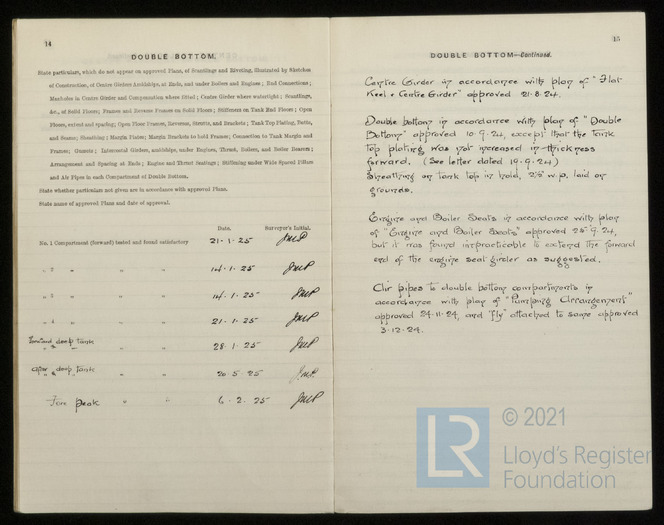 14
DOUBLE BOTTOM.
State particulars, which do not appear on approved Plans, of Scantlings and Riveting, illustrated by Sketches
of Construction, of Centre Girders Amidships, at Ends, and under Boilers and Engines; End Connections;
Manholes in Centre Girder and Compensation where fitted; Centre Girder where watertight; Scantlings,
&c., of Solid Floors; Frames and Reverse Frames on Solid Floors; Stiffeners on Tank End Floors; Open
Floors, extent and spacing; Open Floor Frames, Reverses, Struts, and Brackets; Tank Top Plating, Butts,
and Seams; Sheathing; Margin Plates; Margin Brackets to hold Frames; Connection to Tank Margin and
Frames; Gussets; Intercostal Girders, amidships, under Engines, Thrust, Boilers, and Boiler Bearers;
Arrangement and Spacing at Ends; Engine and Thrust Seatings; Stiffening under Wide Spaced Pillars
and Air Pipes in each Compartment of Double Bottom.
State whether particulars not given are in accordance with approved Plans.
State name of approved Plans and date of approval.
Date. Surveyor's Initial.
No. 1 Compartment (forward) tested and found satisfactory 21·1·25 JMP
„ 2 „ „ „ 14·1·25 JMP
„ 3 „ „ „ 14·1·25 JMP
„ 4 „ „ „ 21·1·25 JMP
Forward deep Tank 28·1·25 JMP
After deep Tank 20·5·25 JMP
Fore Peak „ „ 6·2·25 JMP
15
DOUBLE BOTTOM—Continued.
Centre Girder in accordance with plan of "Flat
Keel & Centre Girder" approved 21·8·24.
Double bottom in accordance with plan of "Double
Bottom" approved 10·9·24, except that the tank
top plating was not increased in thickness
forward. (See letter dated 19·9·24)
Sheathing on tank top in hold, 2½" w.p. laid on
grounds.
Engine and Boiler Seats in accordance with plan
of "Engine and Boiler Seats" approved 25·9·24,
but it was found impracticable to extend the forward
end of the engine seat girder as suggested.
Air pipes to double bottom compartments in
accordance with plan of "Pumping Arrangement"
approved 24·11·24, and "fly" attached to same approved
3·12·24.
© 2021
LR
Lloyd's Register
Foundation